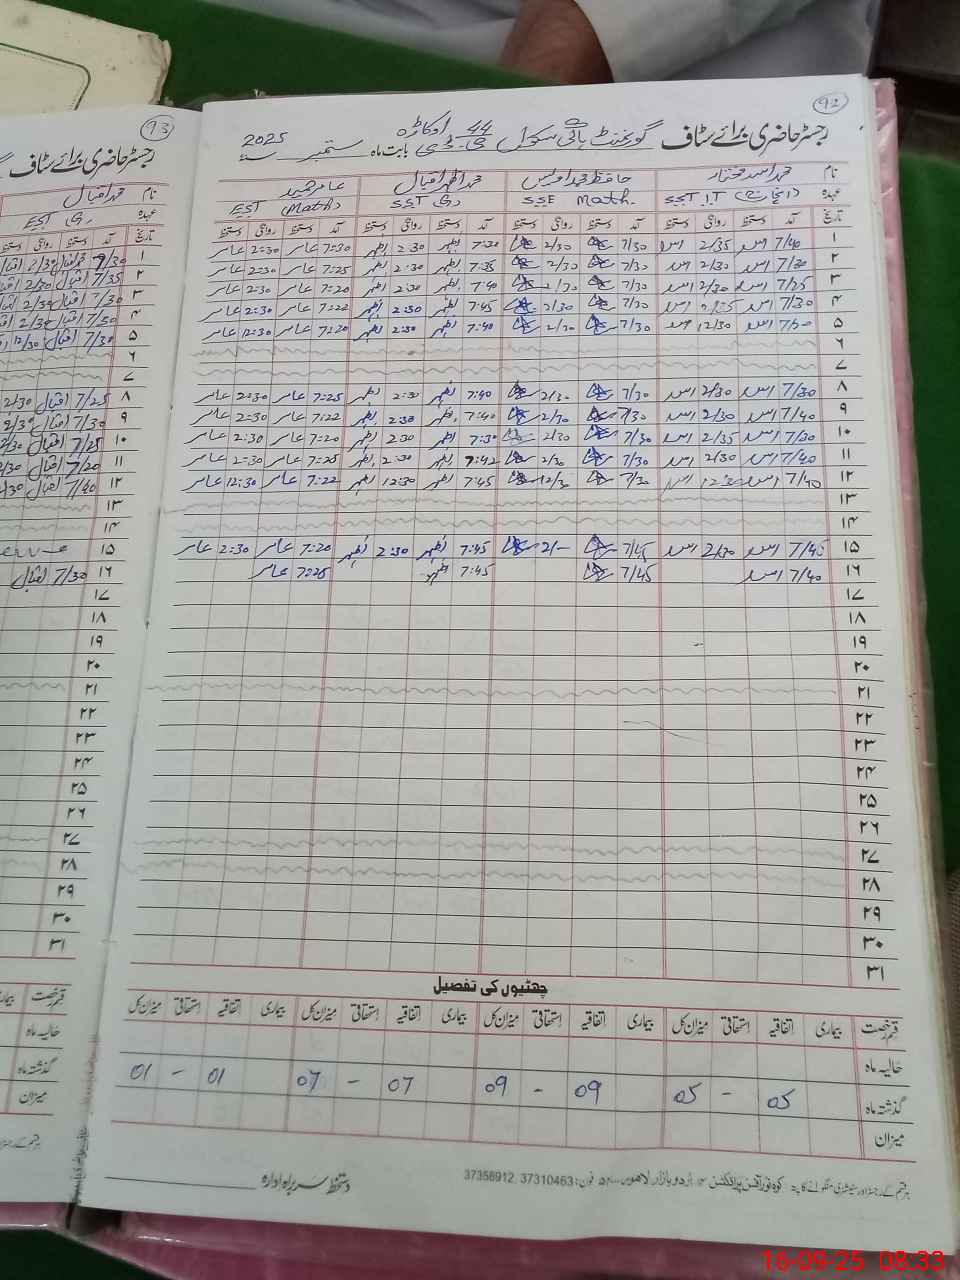 92
رجسٹر حاضری برائے سٹاف گورنمنٹ ہائی سکول 44 اوکاڑہ بابت ماہ ستمبر سنہ 2025
نام محمد اسد مختار حافظ محمد اویس محمد اظہر اقبال عامر حمید
عہدہ SST I.T SSE Math. SST EST (Math)
تاریخ آمد دستخط روانگی دستخط آمد دستخط روانگی دستخط آمد دستخط روانگی دستخط آمد دستخط روانگی دستخط
۱ 7/40 اسد 2/35 اسد 7/30 2/30 7:30 اظہر 2:30 اظہر 7:30 عامر 2:30 عامر
۲ 7/30 اسد 2/30 اسد 7/30 2/30 7:35 اظہر 2:30 اظہر 7:25 عامر 2:30 عامر
۳ 7/25 اسد 2/30 اسد 7/30 2/30 7:40 اظہر 2:30 اظہر 7:20 عامر 2:30 عامر
۴ 7/30 اسد اسد 7/30 2/30 7:45 اظہر 2:30 اظہر 7:22 عامر 2:30 عامر
۵ اسد 12/30 اسد 7/30 7:40 اظہر اظہر 7:20 عامر 12:30 عامر
۶
۷
۸ 7/30 اسد 2/30 اسد 7/30 2/30 7:40 اظہر 2:30 اظہر 7:25 عامر 2:30 عامر
۹ 7/40 اسد 2/30 اسد 7/30 2/30 7:40 اظہر 2:30 اظہر 7:22 عامر 2:30 عامر
۱۰ 7/30 اسد 2/35 اسد 7/30 2/30 7:30 اظہر 2:30 اظہر 7:20 عامر 2:30 عامر
۱۱ 7/40 اسد 2/30 اسد 7/30 2/30 7:42 اظہر 2:30 اظہر 7:25 عامر 2:30 عامر
۱۲ 7/40 اسد اسد 7/30 12/30 7:45 اظہر 12:30 اظہر 7:22 عامر 12:30 عامر
۱۳
۱۴
۱۵ 7/45 اسد 2/30 اسد 7/45 2/- 7:45 اظہر 2:30 اظہر 7:20 عامر 2:30 عامر
۱۶ 7/40 اسد 7/45 7:45 اظہر 7:25 عامر
۱۷
۱۸
۱۹
۲۰
۲۱
۲۲
۲۳
۲۴
۲۵
۲۶
۲۷
۲۸
۲۹
۳۰
۳۱
چھٹیوں کی تفصیل
قسم رخصت بیماری اتفاقیہ استحقاقی میزان کل بیماری اتفاقیہ استحقاقی میزان کل بیماری اتفاقیہ استحقاقی میزان کل بیماری اتفاقیہ استحقاقی میزان کل
حالیہ ماہ
گذشتہ ماہ 05 - 05 09 - 09 07 - 07 01 - 01
میزان
دستخط سربراہ ادارہ
ہر قسم کے رجسٹر اور سٹیشنری منگوانے کا پتہ: کوہ نور آفس پراڈکٹس اُردو بازار لاہور فون: 37310463, 37358912
93
رجسٹر حاضری برائے سٹاف
نام محمد اقبال
عہدہ EST
تاریخ آمد دستخط روانگی دستخط
۱ 7/30 2/30
۲ 7/35 اقبال 2/30
۳ 7/30 اقبال 2/30
۴ اقبال 2/30
۵ 7/30 اقبال 12/30
۶
۷
۸ 7/25 اقبال 2/30
۹ 7/30 اقبال 2/30
۱۰ 7/25 اقبال
۱۱ 7/20 اقبال
۱۲ 7/40 اقبال
۱۳
۱۴
۱۵
۱۶ 7/30 اقبال
۱۷
۱۸
۱۹
۲۰
۲۱
۲۲
۲۳
۲۴
۲۵
۲۶
۲۷
۲۸
۲۹
۳۰
۳۱
قسم رخصت
حالیہ ماہ
گذشتہ ماہ
میزان
16-09-25 08:33